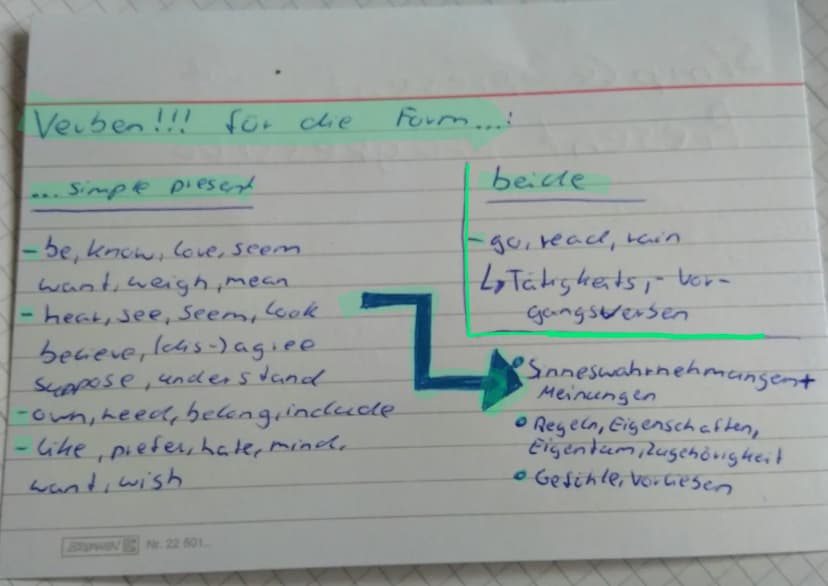 Verben!!! für die Form...:
... simple present
- be, know, love, seem
want, weigh, mean
- hear, see, seem, look
believe, (dis-)agree
suppose, understand
- own, need, belong, include
- like, prefer, hate, mind,
want, wish
beide
- go, read, rain
↳ Tätigkeits,- Vor-
gangsverben
• Sinneswahrnehmungen +
Meinungen
• Regeln, Eigenschaften,
Eigentum, Zugehörigkeit
• Gefühle, Vorlieben
Nr. 22 601